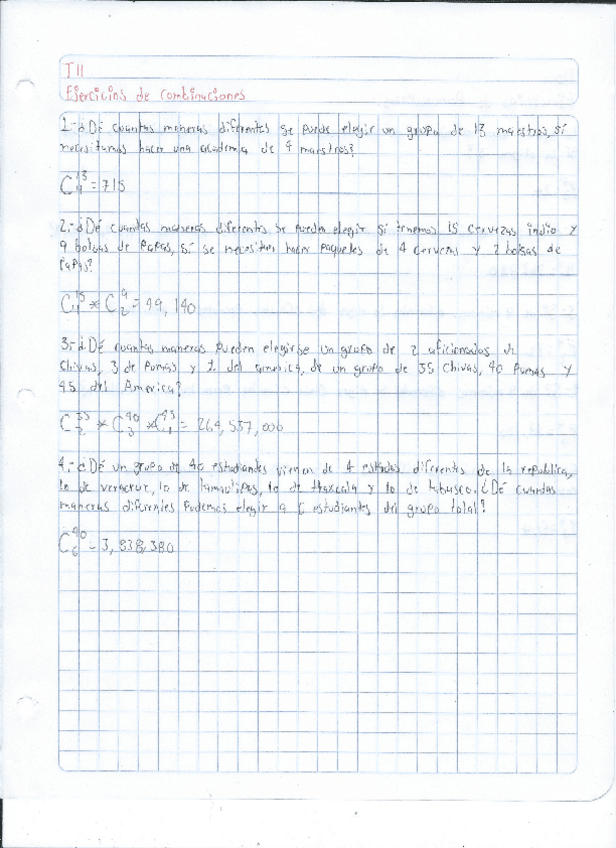 T11
Ejercicios de combinaciones
1.- ¿Dé cuantas maneras diferentes se puede elegir un grupo de 13 maestros, si
necesitamos hacer una academia de 4 maestros?
C 13 4 = 715
2.- ¿Dé cuantas maneras diferentes se pueden elegir si tenemos 15 cervezas indio y
9 bolsas de papas, si se necesitan hacer paquetes de 4 cervezas y 2 bolsas de
papas?
C 15 4 * C 9 2 = 49,140
3.- ¿Dé cuantas maneras pueden elegirse un grupo de 2 aficionados de
chivas, 3 de Pumas y del america, de un grupo de 35 chivas, 40 Pumas y
45 del America?
C 35 2 * C 40 3 * C 45 = 264,537,000
4.- ¿Dé un grupo de 40 estudiantes vienen de 4 estados diferentes de la republica,
10 de veracruz, 10 de tamaulipas, 10 de tlaxcala y 10 de tabasco. ¿Dé cuantas
maneras diferentes Podemos elegir a 6 estudiantes del grupo total?
C 40 6 = 3,838,380